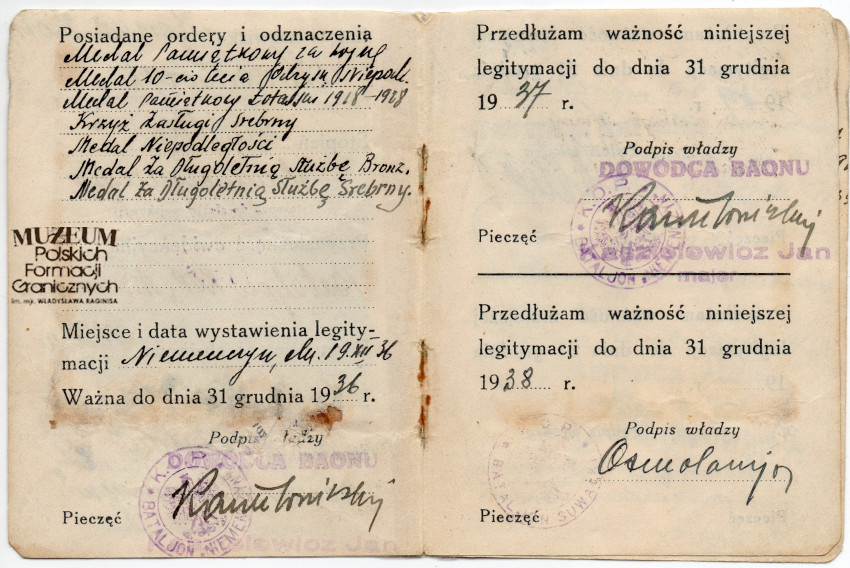 Posiadane ordery i odznaczenia
Medal Pamiątkowy za wojnę
Medal 10-cio lecia Odzysk. Niepodl.
Medal Pamiątkowy 1918-1928
Krzyż Zasługi Srebrny
Medal Niepodległości
Medal Za Długoletnią Służbę Bronz.
Medal Za Długoletnią Służbę Srebrny.
MUZEUM
Polskich
Formacji
Granicznych
im. mjr. WŁADYSŁAWA RAGINISA
Miejsce i data wystawienia legity-
macji Niemenczyn, dn. 19.XII 36
Ważna do dnia 31 grudnia 1936 r.
Podpis władzy
DOWÓDCA BAONU
K.O.P.
BATALJON NIEMEN
Pieczęć
Jan
Przedłużam ważność niniejszej
legitymacji do dnia 31 grudnia
1937 r.
Podpis władzy
DOWÓDCA BAONU
K.O.P.
BATALJON NIEMEN
Pieczęć
Kądzielewicz Jan
major
Przedłużam ważność niniejszej
legitymacji do dnia 31 grudnia
1938 r.
Podpis władzy
K.O.P.
BATALJON SUWA
Pieczęć